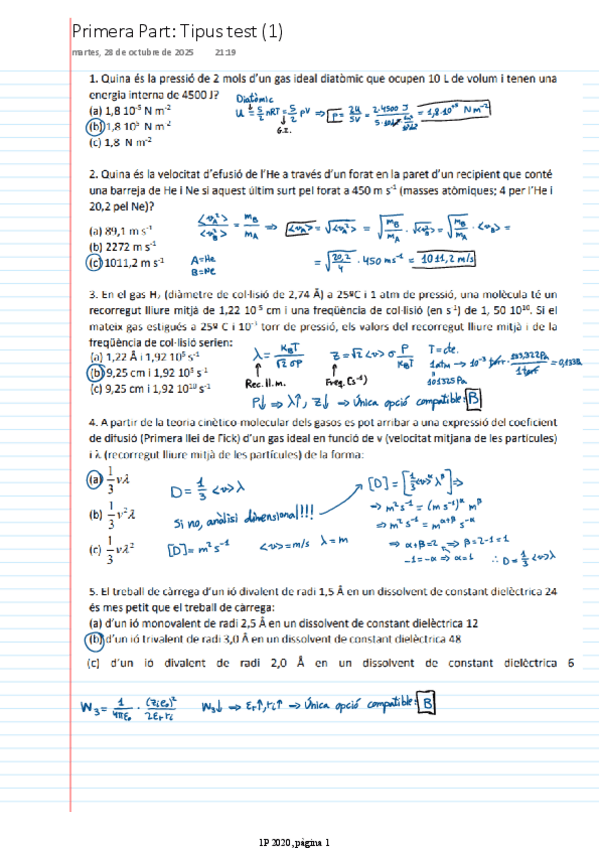 Primera Part: Tipus test (1)
martes, 28 de octubre de 2025 21:19
1. Quina és la pressió de 2 mols d'un gas ideal diatòmic que ocupen 10 L de volum i tenen una
energia interna de 4500 J?
Diatòmic
(a) 1,8 10⁻⁵ N m⁻²
U = 5/2 nRT = 5/2 pV ⇒ p = 2U/5V = 2·4500 J
G.I.
(b) 1,8 10⁵ N m⁻²
(c) 1,8 N m⁻²
2. Quina és la velocitat d'efusió de l'He a través d'un forat en la paret d'un recipient que conté
una barreja de He i Ne si aquest últim surt pel forat a 450 m s⁻¹ (masses atòmiques; 4 per l'He i
20,2 pel Ne)?
(a) 89,1 m s⁻¹
(b) 2272 m s⁻¹
(c) 1011,2 m s⁻¹
A=He
B=Ne
= √(20,2/4) · 450 ms⁻¹ = 1011,2 m/s
3. En el gas H₂ (diàmetre de col·lisió de 2,74 Å) a 25ºC i 1 atm de pressió, una molècula té un
recorregut lliure mitjà de 1,22 10⁻⁵ cm i una freqüència de col·lisió (en s⁻¹) de 1, 50 10¹⁰. Si el
mateix gas estigués a 25º C i 10⁻³ torr de pressió, els valors del recorregut lliure mitjà i de la
freqüència de col·lisió serien:
(a) 1,22 Å i 1,92 10⁵ s⁻¹
(b) 9,25 cm i 1,92 10⁵ s⁻¹
(c) 9,25 cm i 1,92 10¹⁰ s⁻¹
λ = KBT/√2 σP
Z = √2 <v> σ P/KBT
T = cte.
101325 Pa
Rec. ll. m.
Freq. (s⁻¹)
P↓ ⇒ λ↑, Z↓ ⇒ Única opció compatible: B
4. A partir de la teoria cinètico molecular dels gasos es pot arribar a una expressió del coeficient
de difusió (Primera llei de Fick) d'un gas ideal en funció de v (velocitat mitjana de les partícules)
i λ (recorregut lliure mitjà de les partícules) de la forma:
(a) 1/3 vλ
D = 1/3 <v>λ
⇒ m²s⁻¹ = (m s⁻¹)ᵅ mᵝ
(b) 1/3 v²λ
Si no, anàlisi dimensional!!!
⇒ m²s⁻¹ = mᵅ⁺ᵝ s⁻ᵅ
(c) 1/3 vλ²
[D] = m²s⁻¹ <v> = m/s λ = m
⇒ α+β=2 ⇒ β=2-1=1
-1=-α ⇒ α=1 ∴ D = 1/3 <v>λ
5. El treball de càrrega d'un ió divalent de radi 1,5 Å en un dissolvent de constant dielèctrica 24
és mes petit que el treball de càrrega:
(a) d'un ió monovalent de radi 2,5 Å en un dissolvent de constant dielèctrica 12
(b) d'un ió trivalent de radi 3,0 Å en un dissolvent de constant dielèctrica 48
(c) d'un ió divalent de radi 2,0 Å en un dissolvent de constant dielèctrica 6
W₃ = 1/4πε₀ · (zᵢe₀)²/2εᵣrᵢ W₃↓ ⇒ εᵣ↑, rᵢ↑ ⇒ Única opció compatible: B
1P 2020, página 1